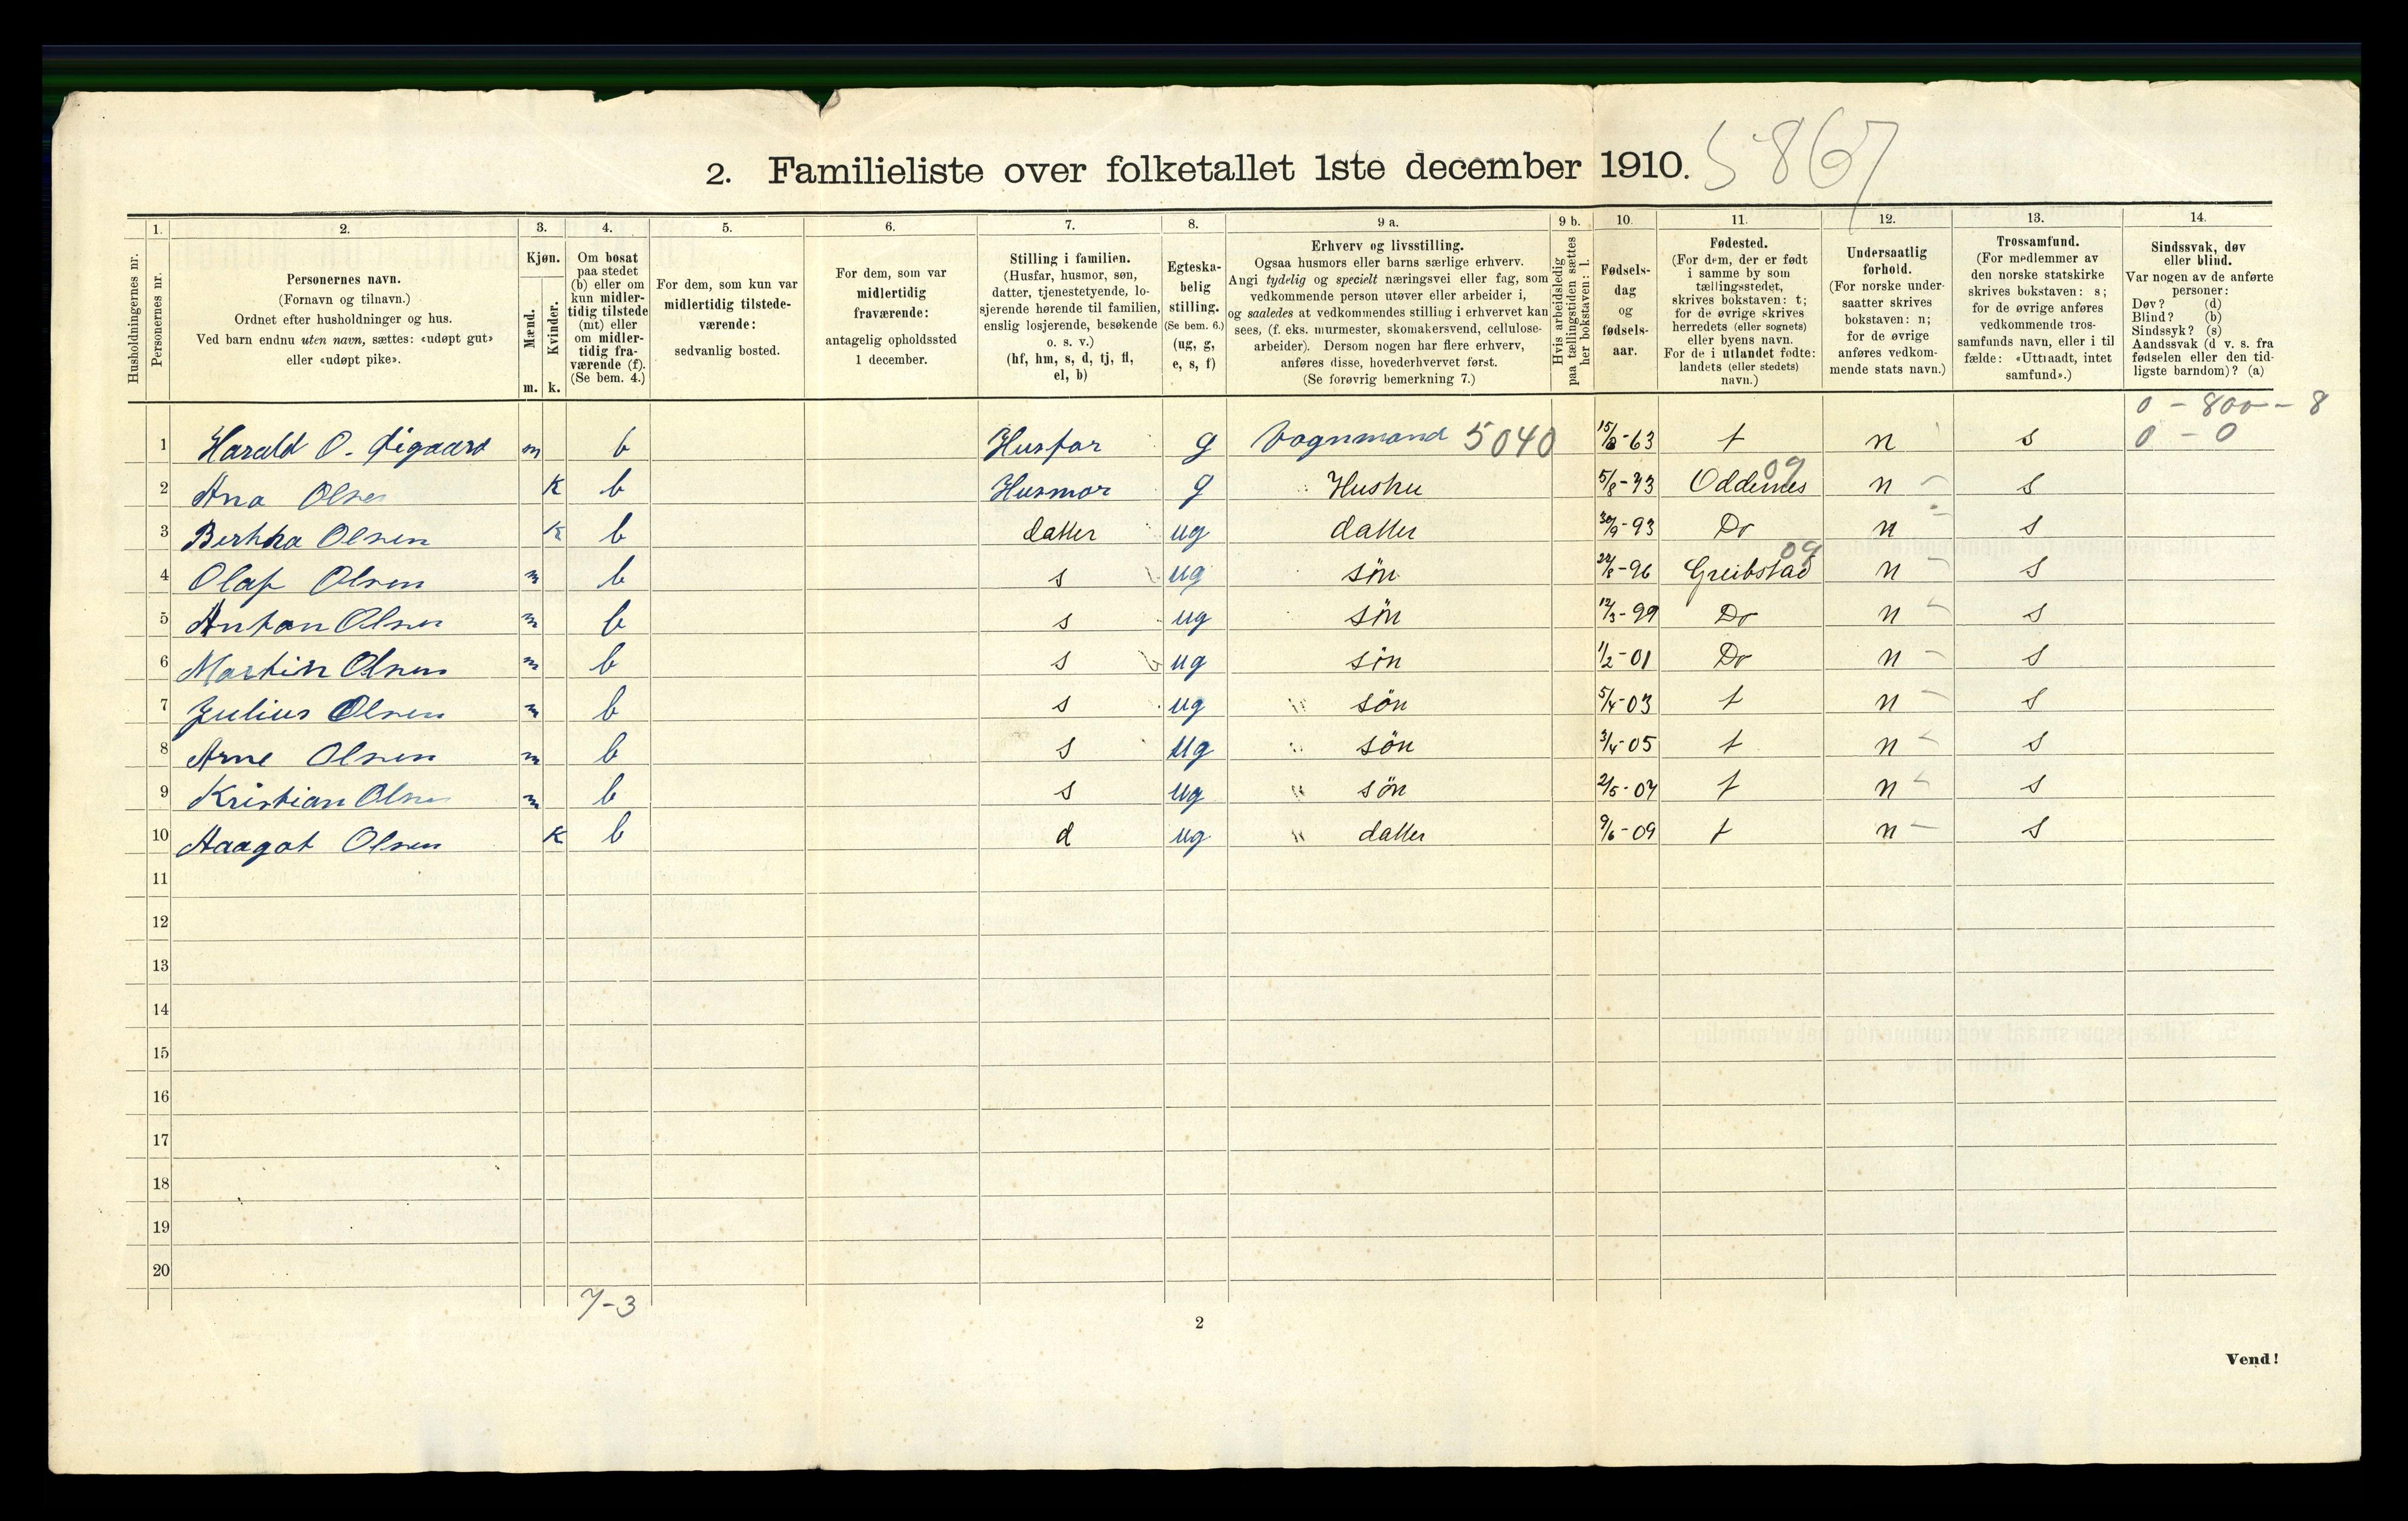 5867
2. Familieliste over folketallet 1ste december 1910.
1. 2. 3. 4. 5. 6. 7. 8. 9 a. 9 b. 10. 11. 12. 13. 14.
Husholdningernes nr.
Personernes nr.
Personernes navn.
(Fornavn og tilnavn.)
Ordnet efter husholdninger og hus.
Ved barn endnu uten navn, sættes: «udøpt gut»
eller «udøpt pike».
Kjøn.
Mænd.
m.
Kvinder.
k.
Om bosat
paa stedet
(b) eller om
kun midler-
tidig tilstede
(mt) eller
om midler-
tidig fra-
værende (f).
(Se bem. 4.)
For dem, som kun var
midlertidig tilstede-
værende:
sedvanlig bosted.
For dem, som var
midlertidig
fraværende:
antagelig opholdssted
1 december.
Stilling i familien.
(Husfar, husmor, søn,
datter, tjenestetyende, lo-
sjerende hørende til familien,
enslig losjerende, besøkende
o. s. v.)
(hf, hm, s, d, tj, fl,
el, b)
Egteska-
belig
stilling.
(Se bem. 6.)
(ug, g,
e, s, f)
Erhverv og livsstilling.
Ogsaa husmors eller barns særlige erhverv.
Angi tydelig og specielt næringsvei eller fag, som
vedkommende person utøver eller arbeider i,
og saaledes at vedkommendes stilling i erhvervet kan
sees, (f. eks. murmester, skomakersvend, cellulose-
arbeider). Dersom nogen har flere erhverv,
anføres disse, hovederhvervet først.
(Se forøvrig bemerkning 7.)
Hvis arbeidsledig
paa tællingstiden sættes
her bokstaven: l.
Fødsels-
dag
og
fødsels-
aar.
Fødested.
(For dem, der er født
i samme by som
tællingsstedet,
skrives bokstaven: t;
for de øvrige skrives
herredets (eller sognets)
eller byens navn.
For de i utlandet fødte:
landets (eller stedets)
navn.)
Undersaatlig
forhold.
(For norske under-
saatter skrives
bokstaven: n;
for de øvrige
anføres vedkom-
mende stats navn.)
Trossamfund.
(For medlemmer av
den norske statskirke
skrives bokstaven: s;
for de øvrige anføres
vedkommende tros-
samfunds navn, eller i til
fælde: «Uttraadt, intet
samfund».)
Sindssvak, døv
eller blind.
Var nogen av de anførte
personer:
Døv? (d)
Blind? (b)
Sindssyk? (s)
Aandssvak (d. v. s. fra
fødselen eller den tid-
ligste barndom)? (a)
0 - 800 - 8
1 Harald O. m b Husfar g Vognmand 5040 63 t n s 0 - 0
2 Ana Olsen K b Husmor g Hustru 5/8-73 Oddernes 09 n s
3 Bertha Olsen K b datter ug datter 30/9-93 Do n s
4 Olaf Olsen m b s ug sön 96 Greibstad 09 n s
5 Anton Olsen m b s ug sön 12/3-99 Do n s
6 Martin Olsen m b s ug sön 1/2-01 Do n s
7 Julius Olsen m b s ug " sön 5/4-03 t n s
8 Arne Olsen m b s ug " sön 3/4-05 t n s
9 Kristian Olsen m b s ug " sön 2/5-07 t n s
10 Aagot Olsen K b d ug " datter 9/6-09 t n s
11
12
13
14
15
16
17
18
19
20
7-3
2
Vend!